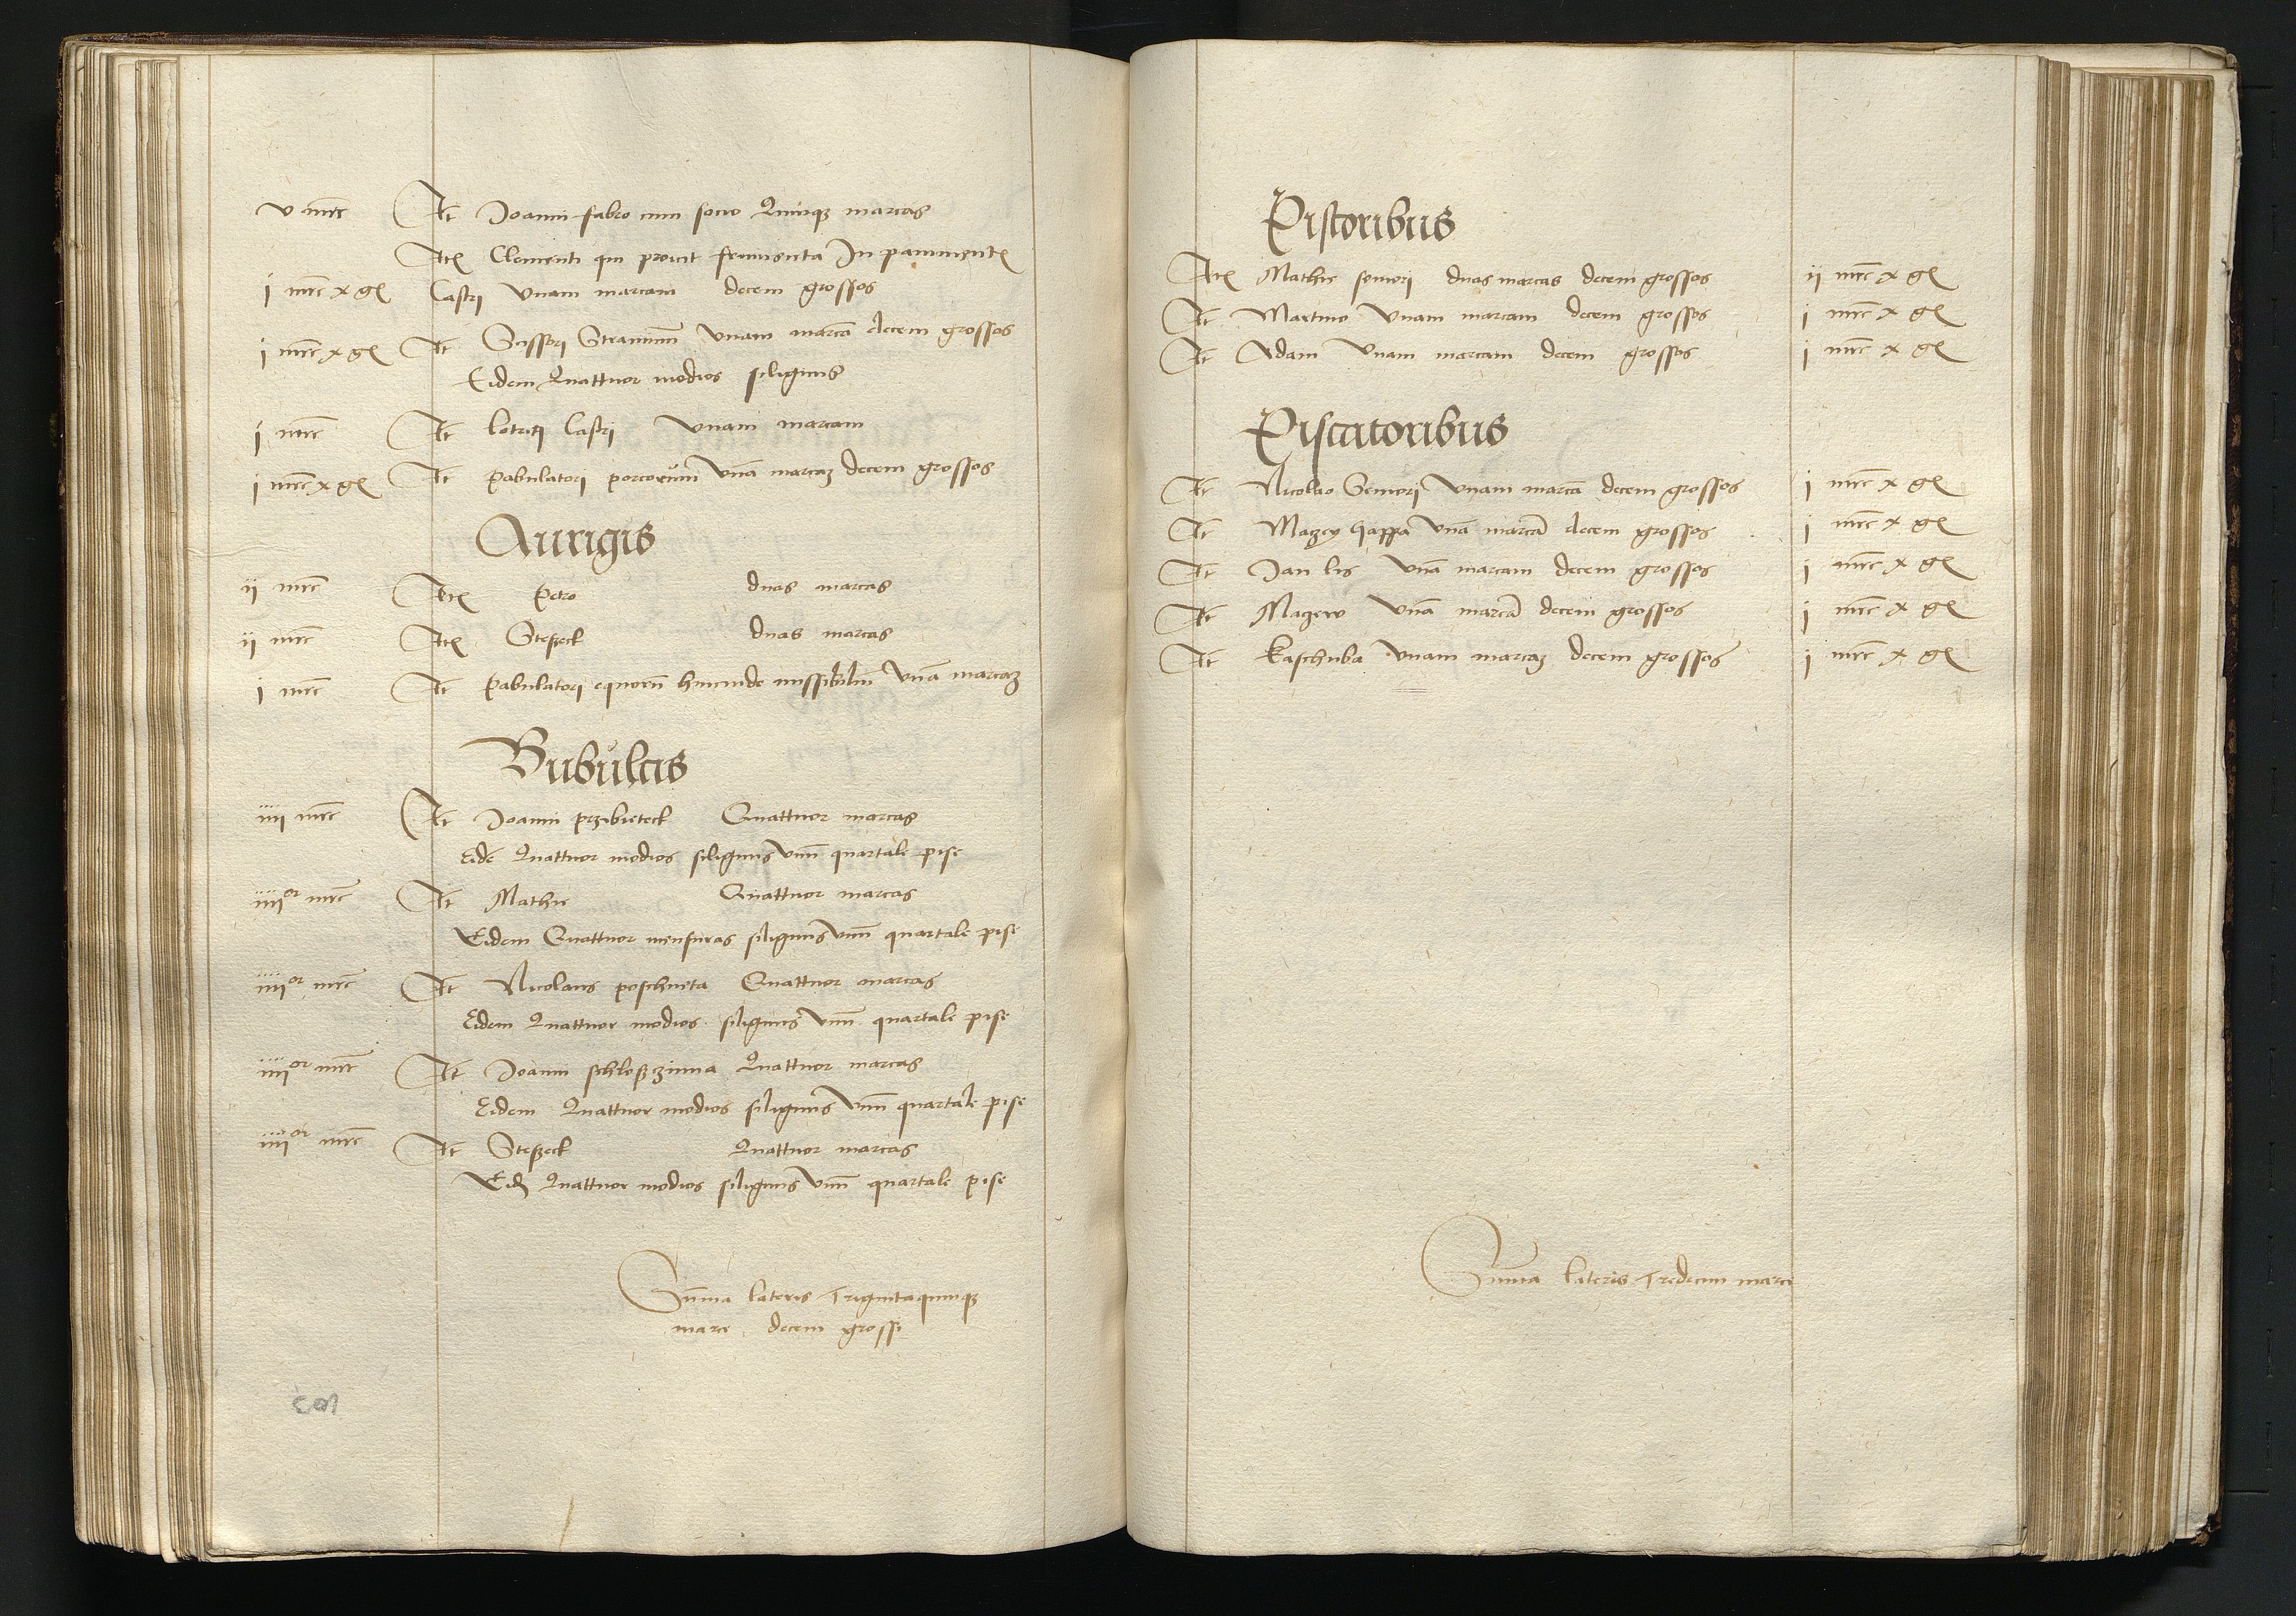 v mrc It Joanni fabro cum socio Quinqz marcas
Itē Clementi qui proicit frumenta In pavimentū
j mrc x gꝭ Castri Vnam marcam decem grossos
j mrc x gꝭ It Scissori Straminū Vnam marcā decem grossos
Eidem Quattuor modios siliginis
j mrc It lotrici Castri Vnam marcam
j mrc x gꝭ It Pabulatori porcorum vnā marcaz decem grossos
Aurigis
ij mrc Itē Petro duas marcas
ij mrc Itē Steßeck duas marcas
j mrc It Pabulatori equorū hincinde missibiliū Vnā marcaz
Bubulcis
iiij mrc It Joanni przibieteck Quattuor marcas
Eidē Quattuor modios siliginis vnū quartale pise
iiijor mrc It Mathie Quattuor marcas
Eidem Quattuor mensuras siliginis vnū quartale pise
iiijor mrc It Nicolaus poschweta Quattuor marcas
Eidem Quattuor modios siliginis vnū quartale pise
iiijor mrc It Joanni schloßzinna Quattuor marcas
Eidem Quattuor modios siliginis vnū quartale pise
iiijor mrc It Steßeck Quattuor marcas
Eidē Quattuor modios siliginis vnū quartale pise
Sūma lateris Trigintaquinqz
marce decem grossi
103
Pistoribus
Itē Mathie seniori duas marcas decem grossos ij mrc x gꝭ
It Martino Vnam marcam decem grossos j mrc x gꝭ
It Adam Vnam marcam decem grossos j mrc x gꝭ
Piscatoribus
It Nicolao Seniori Vnam marcā decem grossos j mrc x gꝭ
It Mazey happa Vnā marcā decem grossos j mrc x gꝭ
It Jan lis Vnā marcam decem grossos j mrc x gꝭ
It Mazew Vnā marcā decem grossos j mrc x gꝭ
It Kaschuba vnam marcaz decem grossos j mrc x gꝭ
Sūma lateris Tredecim marce